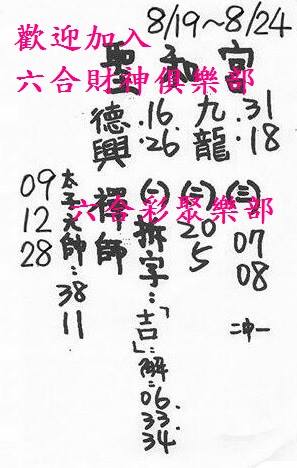 8/19~8/24
歡迎加入
六合財神俱樂部
聖和宮
九龍:31.18
德興:16.26
禪師
(三)07
08
二中一
(三)20
5
(二)拆字:「吉」解:06.
33.
34
六合彩聚樂部
太子元帥:38
11
09
12
28